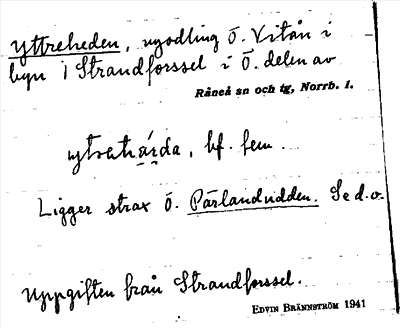 Yttreheden, nyodling ö. Vitån i
byn i Strandforssel i ö. delen av
Råneå sn och tg, Norrb. l.
ytrehä́ɪda, bf. fem.
Ligger strax ö. Pärlandudden. Se d.o.
Uppgiften från Strandforssel.
EDVIN BRÄNNSTRÖM 1941